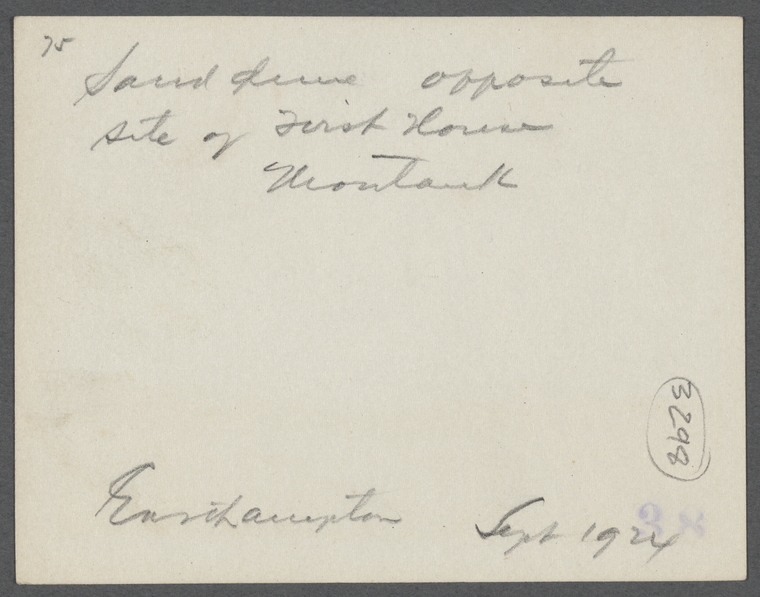 75
Sand dune opposite
site of First House
Montauk
3298
Easthampton Sept 1924